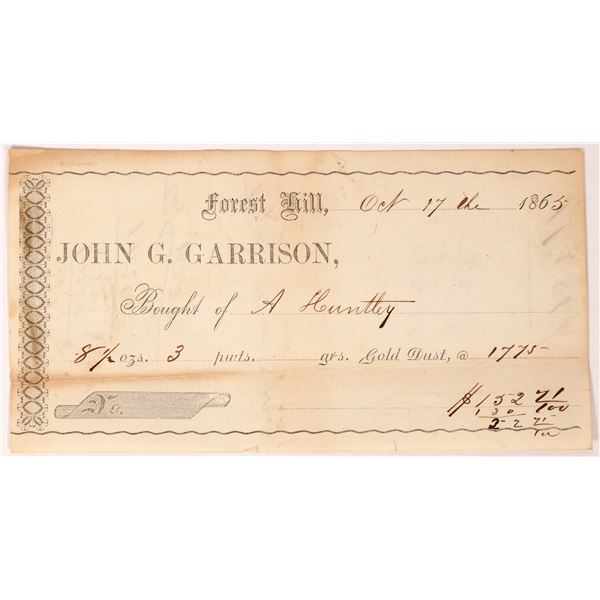 Forest Hill, Oct 17 the 1865
JOHN G. GARRISON,
Bought of A Huntley
8 1/2 ozs. 3 pwts. grs. Gold Dust, @ 1775
No.
$152 71/100
130
22 71/100